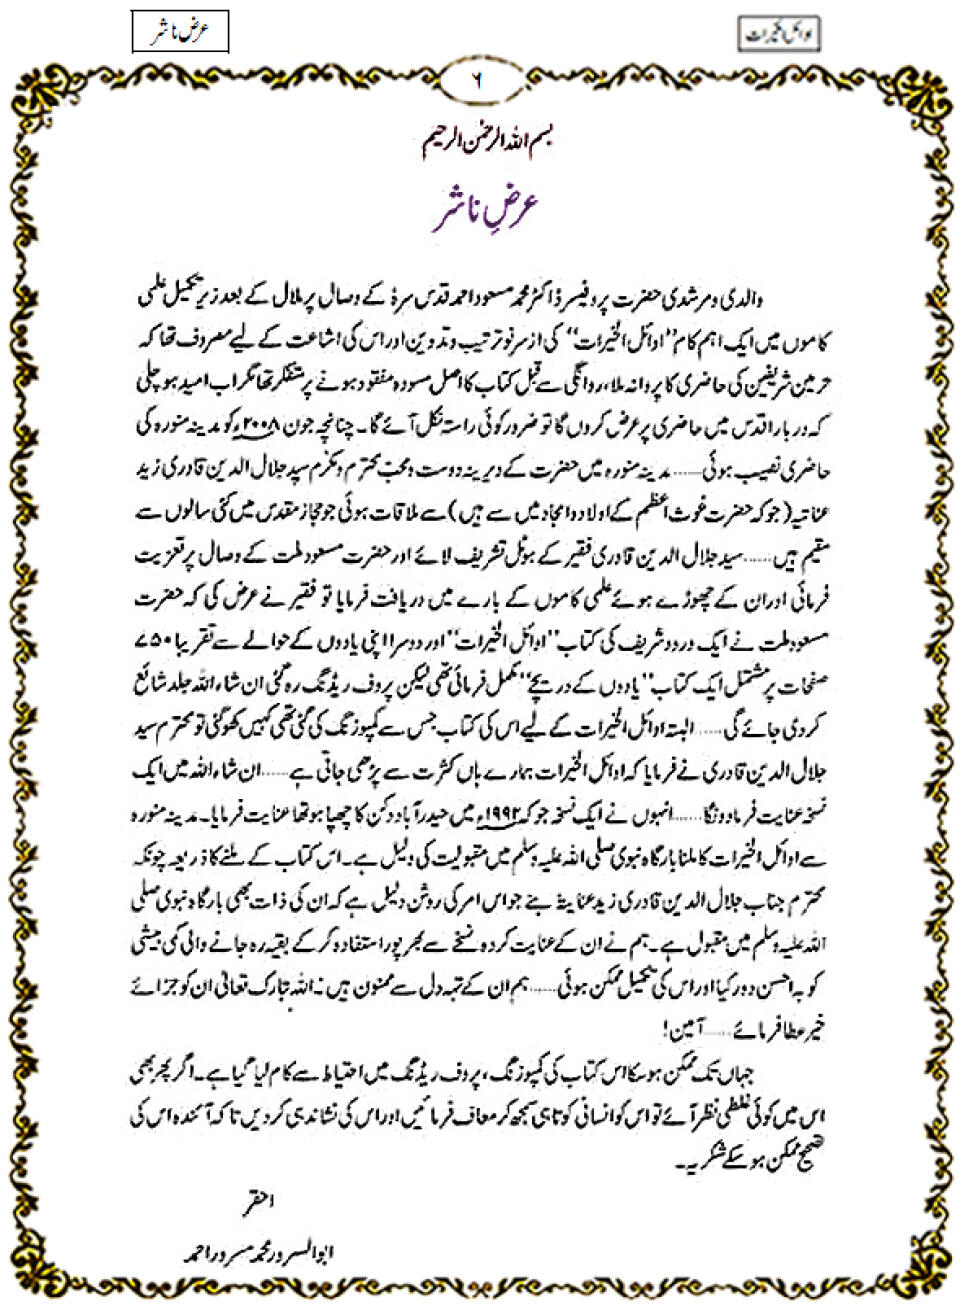 اوائل الخیرات
عرض ناشر
۶
بسم اللہ الرحمٰن الرحیم
عرضِ ناشر
والدی و مرشدی حضرت پروفیسر ڈاکٹر محمد مسعود احمد قدس سرہٗ کے وصال پر ملال کے بعد زیر تکمیل علمی
کاموں میں ایک اہم کام ”اوائل الخیرات“ کی از سر نو ترتیب و تدوین اور اس کی اشاعت کے لیے مصروف تھا کہ
حرمین شریفین کی حاضری کا پروانہ ملا، روانگی سے قبل کتاب کا اصل مسودہ مفقود ہونے پر متفکر تھا مگر اب امید ہو چلی
کہ دربار اقدس میں حاضری پر عرض کروں گا تو ضرور کوئی راستہ نکل آئے گا۔ چنانچہ جون ۲۰۰۸ء کو مدینہ منورہ کی
حاضری نصیب ہوئی...... مدینہ منورہ میں حضرت کے دیرینہ دوست و محب محترم و مکرم سید جلال الدین قادری زید
عنایتہ (جو کہ حضرت غوث اعظم کے اولاد و امجاد میں سے ہیں) سے ملاقات ہوئی جو حجاز مقدس میں کئی سالوں سے
مقیم ہیں...... سید جلال الدین قادری فقیر کے ہوٹل تشریف لائے اور حضرت مسعود ملت کے وصال پر تعزیت
فرمائی اور ان کے چھوڑے ہوئے علمی کاموں کے بارے میں دریافت فرمایا تو فقیر نے عرض کی کہ حضرت
مسعود ملت نے ایک درود شریف کی کتاب ”اوائل الخیرات“ اور دوسرا اپنی یادوں کے حوالے سے تقریبا ۷۵۰
صفحات پر مشتمل ایک کتاب ”یادوں کے دریچے“ مکمل فرمائی تھی لیکن پروف ریڈنگ رہ گئی ان شاء اللہ جلد شائع
کر دی جائے گی...... البتہ اوائل الخیرات کے لیے اس کی کتاب جس سے کمپوزنگ کی گئی تھی کہیں کھو گئی تو محترم سید
جلال الدین قادری نے فرمایا کہ اوائل الخیرات ہمارے ہاں کثرت سے پڑھی جاتی ہے...... ان شاء اللہ میں ایک
نسخہ عنایت فرما دونگا...... انہوں نے ایک نسخہ جو کہ ۱۹۹۲ء میں حیدر آباد دکن کا چھپا ہوا تھا عنایت فرمایا۔ مدینہ منورہ
سے اوائل الخیرات کا ملنا بارگاہ نبوی صلی اللہ علیہ وسلم میں مقبولیت کی دلیل ہے۔ اس کتاب کے ملنے کا ذریعہ چونکہ
محترم جناب جلال الدین قادری زید عنایتہ بنے جو اس امر کی روشن دلیل ہے کہ ان کی ذات بھی بارگاہ نبوی صلی
اللہ علیہ وسلم میں مقبول ہے۔ ہم نے ان کے عنایت کردہ نسخے سے بھرپور استفادہ کر کے بقیہ رہ جانے والی کمی بیشی
کو بہ احسن دور کیا اور اس کی تکمیل ممکن ہوئی...... ہم ان کے تہہ دل سے ممنون ہیں۔ اللہ تبارک تعالیٰ ان کو جزائے
خیر عطا فرمائے...... آمین!
جہاں تک ممکن ہو سکا اس کتاب کی کمپوزنگ، پروف ریڈنگ میں احتیاط سے کام لیا گیا ہے۔ اگر پھر بھی
اس میں کوئی غلطی نظر آئے تو اس کو انسانی کوتاہی سمجھ کر معاف فرمائیں اور اس کی نشاندہی کر دیں تاکہ آئندہ اس کی
تصحیح ممکن ہو سکے شکریہ۔
احقر
ابوالسرور محمد مسرور احمد